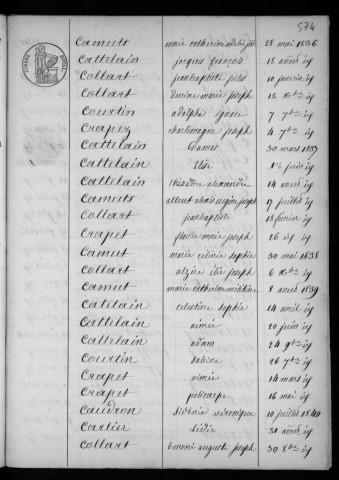 574
Camuts marie catherine adèle jh 28 mai 1836
Cattelain jacques françois 18 avril id
Collart jeanbaptiste jules 10 janvier id
Collart marie joseph 18 Xbre id
Courtin adolphe ignace 7 7bre id
Crapez charlemagne joseph 4 7bre id
Cattelain Damas 30 mars 1837
Cattelain Elise 1er juin id
Cattelain théodore alexandre 14 août id
Camuts albert joseph 9 juillet id
Collart jeanbaptiste 18 février id
Crapet florée marie joseph 26 id
Camut marie sophie 30 mai 1838
Collart alzire joseph 6 Xbre id
Camut marie catherine 8 avril 1839
Catelain célestine sophie 14 avril id
Cattelain aimée 20 juin id
Cattelain adam 24 9bre id
Courtin sabine 26 7bre id
Crapet aimée 14 mars id
Crapet policarpe 16 mai id
Caudron sidonie véronique 10 juillet 1840
Carlier lidie 31 août id
Collart bononi auguste joseph 30 8bre id